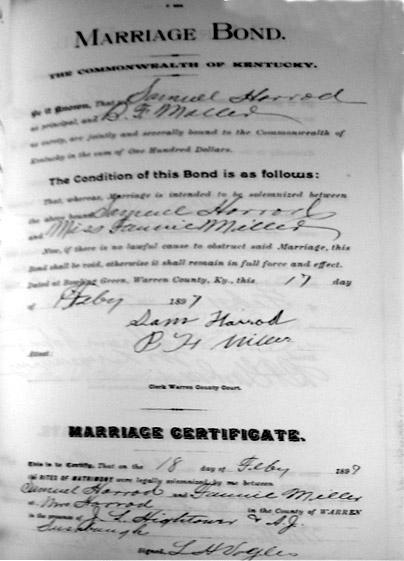 MARRIAGE BOND.
THE COMMONWEALTH OF KENTUCKY.
Be it Known, That Samuel Harrod
as principal, and B. F. Miller
as surety, are jointly and severally bound to the Commonwealth of
Kentucky in the sum of One Hundred Dollars.
The Condition of this Bond is as follows:
That, whereas, Marriage is intended to be solemnized between
the above bound Samuel Harrod
and Miss Fannie Miller
Now, if there is no lawful cause to obstruct said Marriage, this
Bond shall be void, otherwise it shall remain in full force and effect.
Dated at Bowling Green, Warren County, Ky., this 17 day
of Feby 1897
Sam Harrod
B F Miller
Attest:
Clerk Warren County Court.
MARRIAGE CERTIFICATE.
This is to Certify, That on the 18 day of Feby 1897
the RITES OF MATRIMONY were legally solemnized by me between
Samuel Harrod and Fannie Miller
at Harrod in the County of WARREN
in the presence of J. L. Hightower & A. J.
Signed,